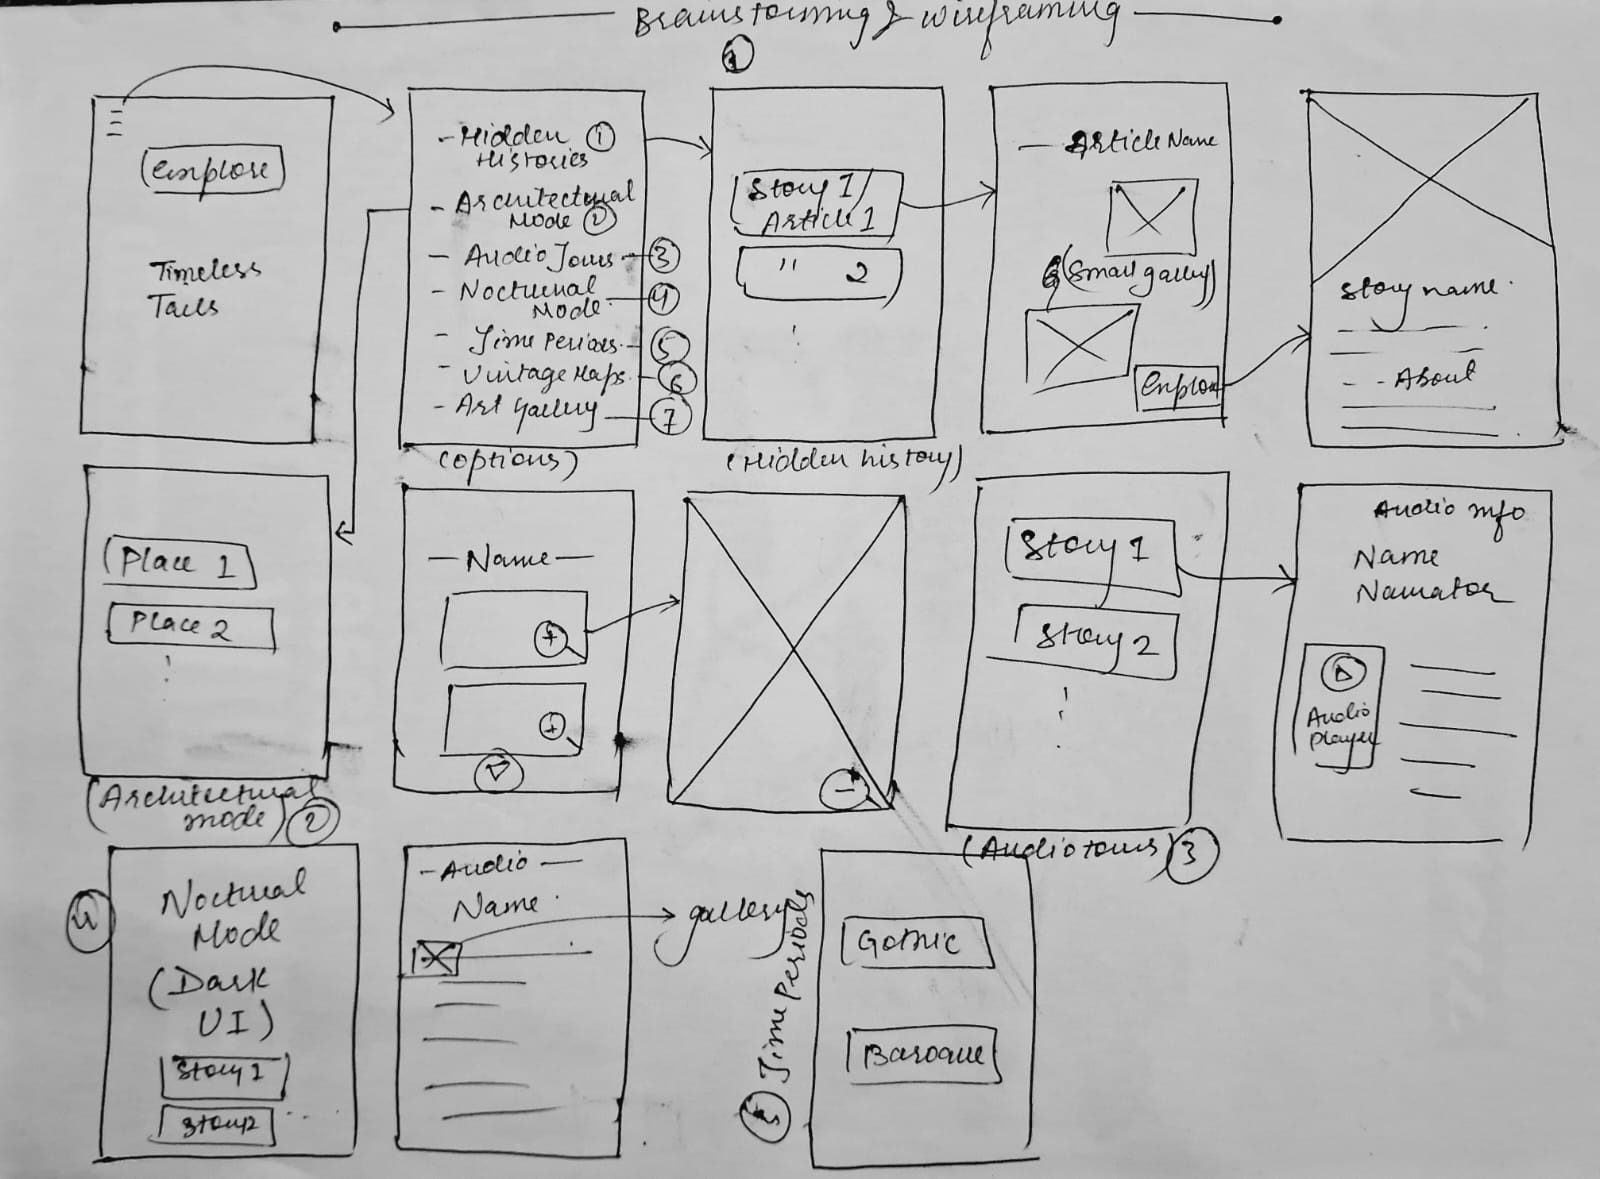 Brainstorming & wireframing
1
Explore
Timeless
Tails
- Hidden 1
Histories
- Architectural
Mode 2
- Audio Tours - 3
- Nocturnal
Mode - 4
- Time Periods - 5
- Vintage Maps - 6
- Art gallery - 7
(options)
Story 1/
Article 1
" 2
(Hidden history)
- Article Name
(Small gallery)
Explore
Story name
- - About
Place 1
Place 2
(Architectural
mode) 2
- Name -
+
+
-
Story 1
Story 2
(Audio tours) 3
Audio info
Name
Narrator
Audio
player
4
Noctural
Mode
(Dark
UI)
Story 1
Story 2
- Audio -
Name
gallery
5 Time Periods
Gothic
Baroque